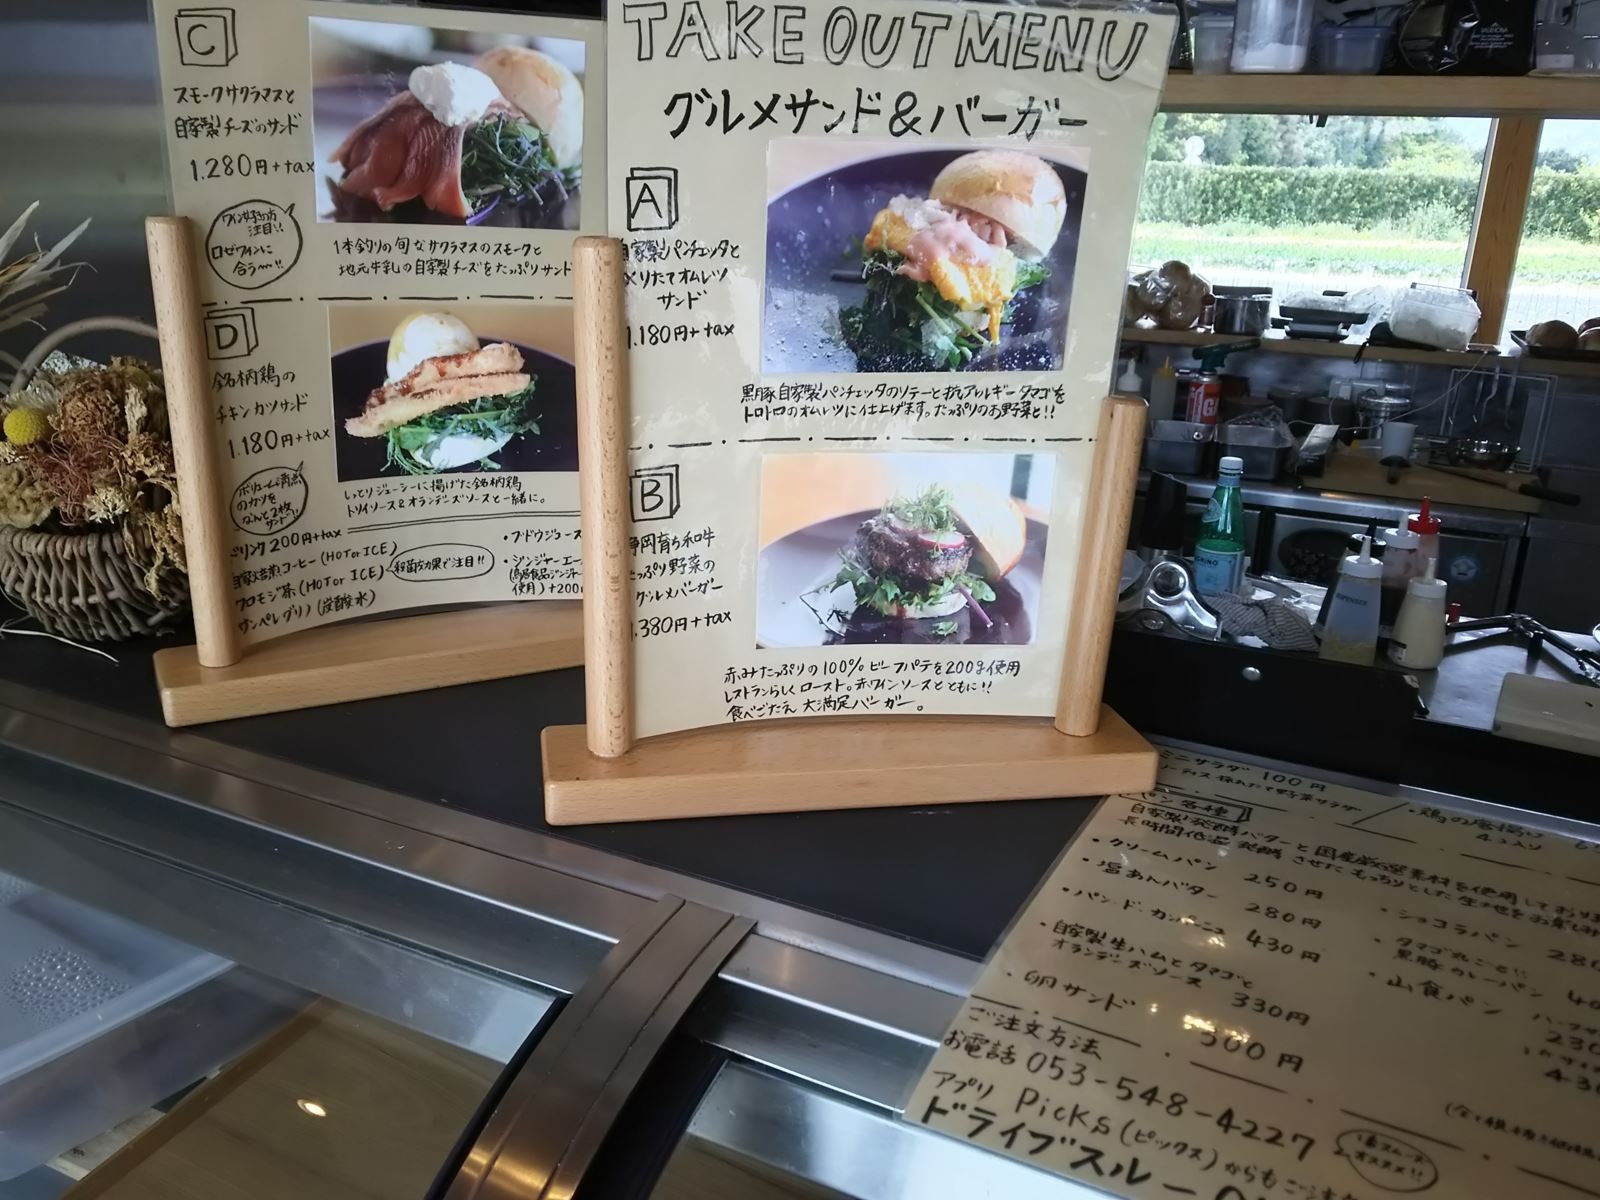 C
スモークサクラマスと
自家製チーズのサンド
1.280円+tax
ワイン好きの方
注目!!
ロゼワインに
合う〜!!
1本釣りの旬なサクラマスのスモークと
地元牛乳の自家製チーズをたっぷりサンド
D
銘柄鶏の
チキンカツサンド
1.180円+tax
ボリューム満点
のカツを
なんと2枚
サンド!!
しっとりジューシーに揚げた銘柄鶏
トリイソース&オランデーズソースと一緒に。
ドリンク200円+tax
自家焙煎コーヒー(HOT or ICE)
クロモジ茶(HOT or ICE)
殺菌効果で注目!!
サンペレグリノ(炭酸水)
・ブドウジュース
・ジンジャーエー
使用)+200
TAKE OUT MENU
グルメサンド&バーガー
A
自家製パンチェッタと
作りたてオムレツ
サンド
1.180円+tax
黒豚自家製パンチェッタのソテーと抗アレルギータマゴを
トロトロのオムレツに仕上げます。たっぷりのお野菜と!!
B
静岡育ち和牛
たっぷり野菜の
グルメバーガー
1.380円+tax
赤みたっぷりの100%ビーフパテを200g使用
レストランらしくロースト。赤ワインソースとともに!!
食べごたえ大満足バーガー。
ミニサラダ 100円
採れたて野菜サラダ
・鶏の唐揚げ
4コ入り
パン各種
自家製発酵バターと国産厳選素材を使用しており
長時間低温発酵させたもっちりとした生地をお楽しみ
・クリームパン 250円
・塩あんバター 280円
・パン・ド・カンパーニュ 430円
・自家製生ハムとタマゴと
オランデーズソース 330円
・卵サンド 300円
・ショコラパン 280
・タマゴ丸ごと!!
黒豚カレーパン
・山食パン
230
ご注文方法
お電話 053-548-4227
アプリ Picks(ピックス)からも
一番スムーズ
オススメ!!
ドライブスルー